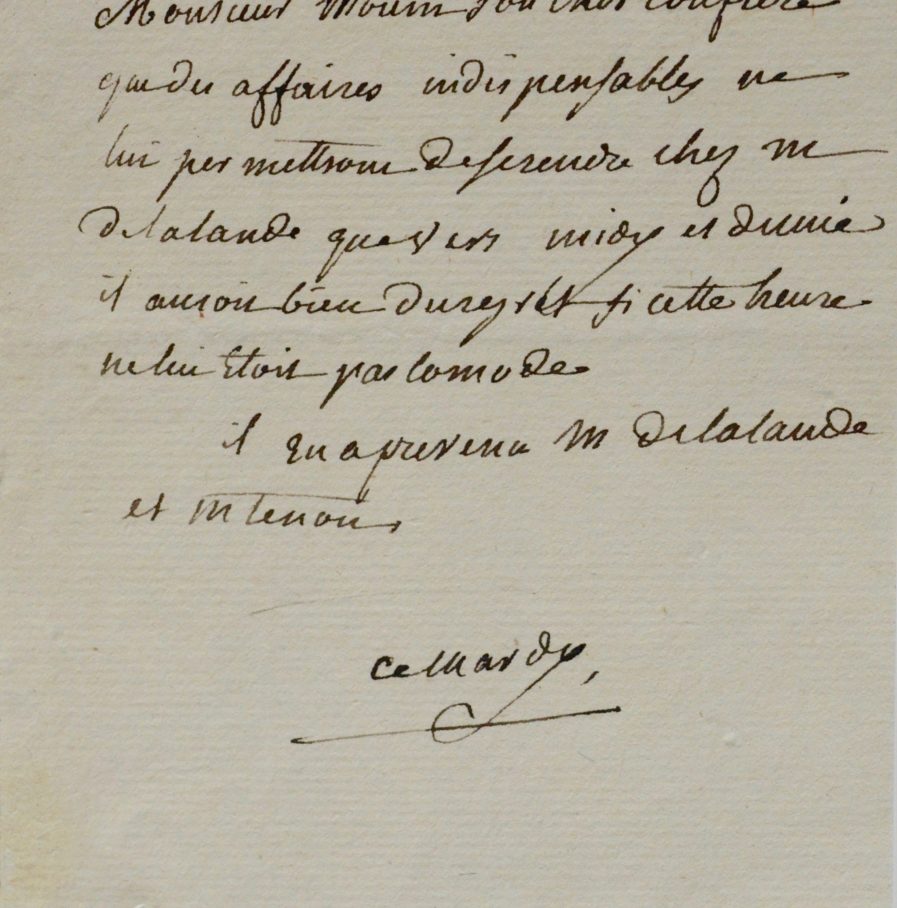 Monsieur son cher confrere
que des affaires indispensables ne
lui permettront de se rendre chez m
delalande que vers midy et dumie
il auroit bien du regret si cette heure
ne lui Etoit pas comode
il En a prevenu M delalande
et M tenon
ce Mardy